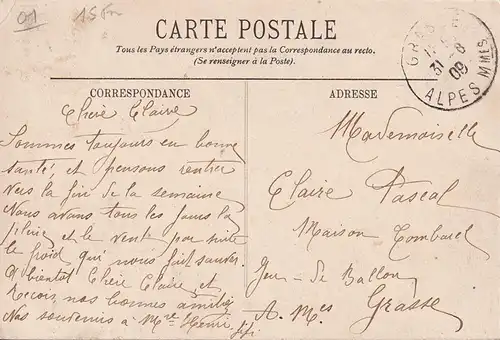 01
15 Fr
CARTE POSTALE
Tous les Pays étrangers n'acceptent pas la Correspondance au recto.
(Se renseigner à la Poste).
GRAS
31 8
09
ALPES MMES
CORRESPONDANCE
Chère Claire
Sommes toujours en bonne
santé, et pensons rentrer
vers la fin de la semaine
Nous avons tous les jours la
pluie et le vent par suite
le froid qui nous fait sauver.
A bientôt Chère Claire, et
Recois nos bonnes amitiés
Nos souvenirs à Mme Henri
ADRESSE
Mademoiselle
Claire Pascal
Maison Combarel
Jeu-de Ballon
Grasse
A. Mes